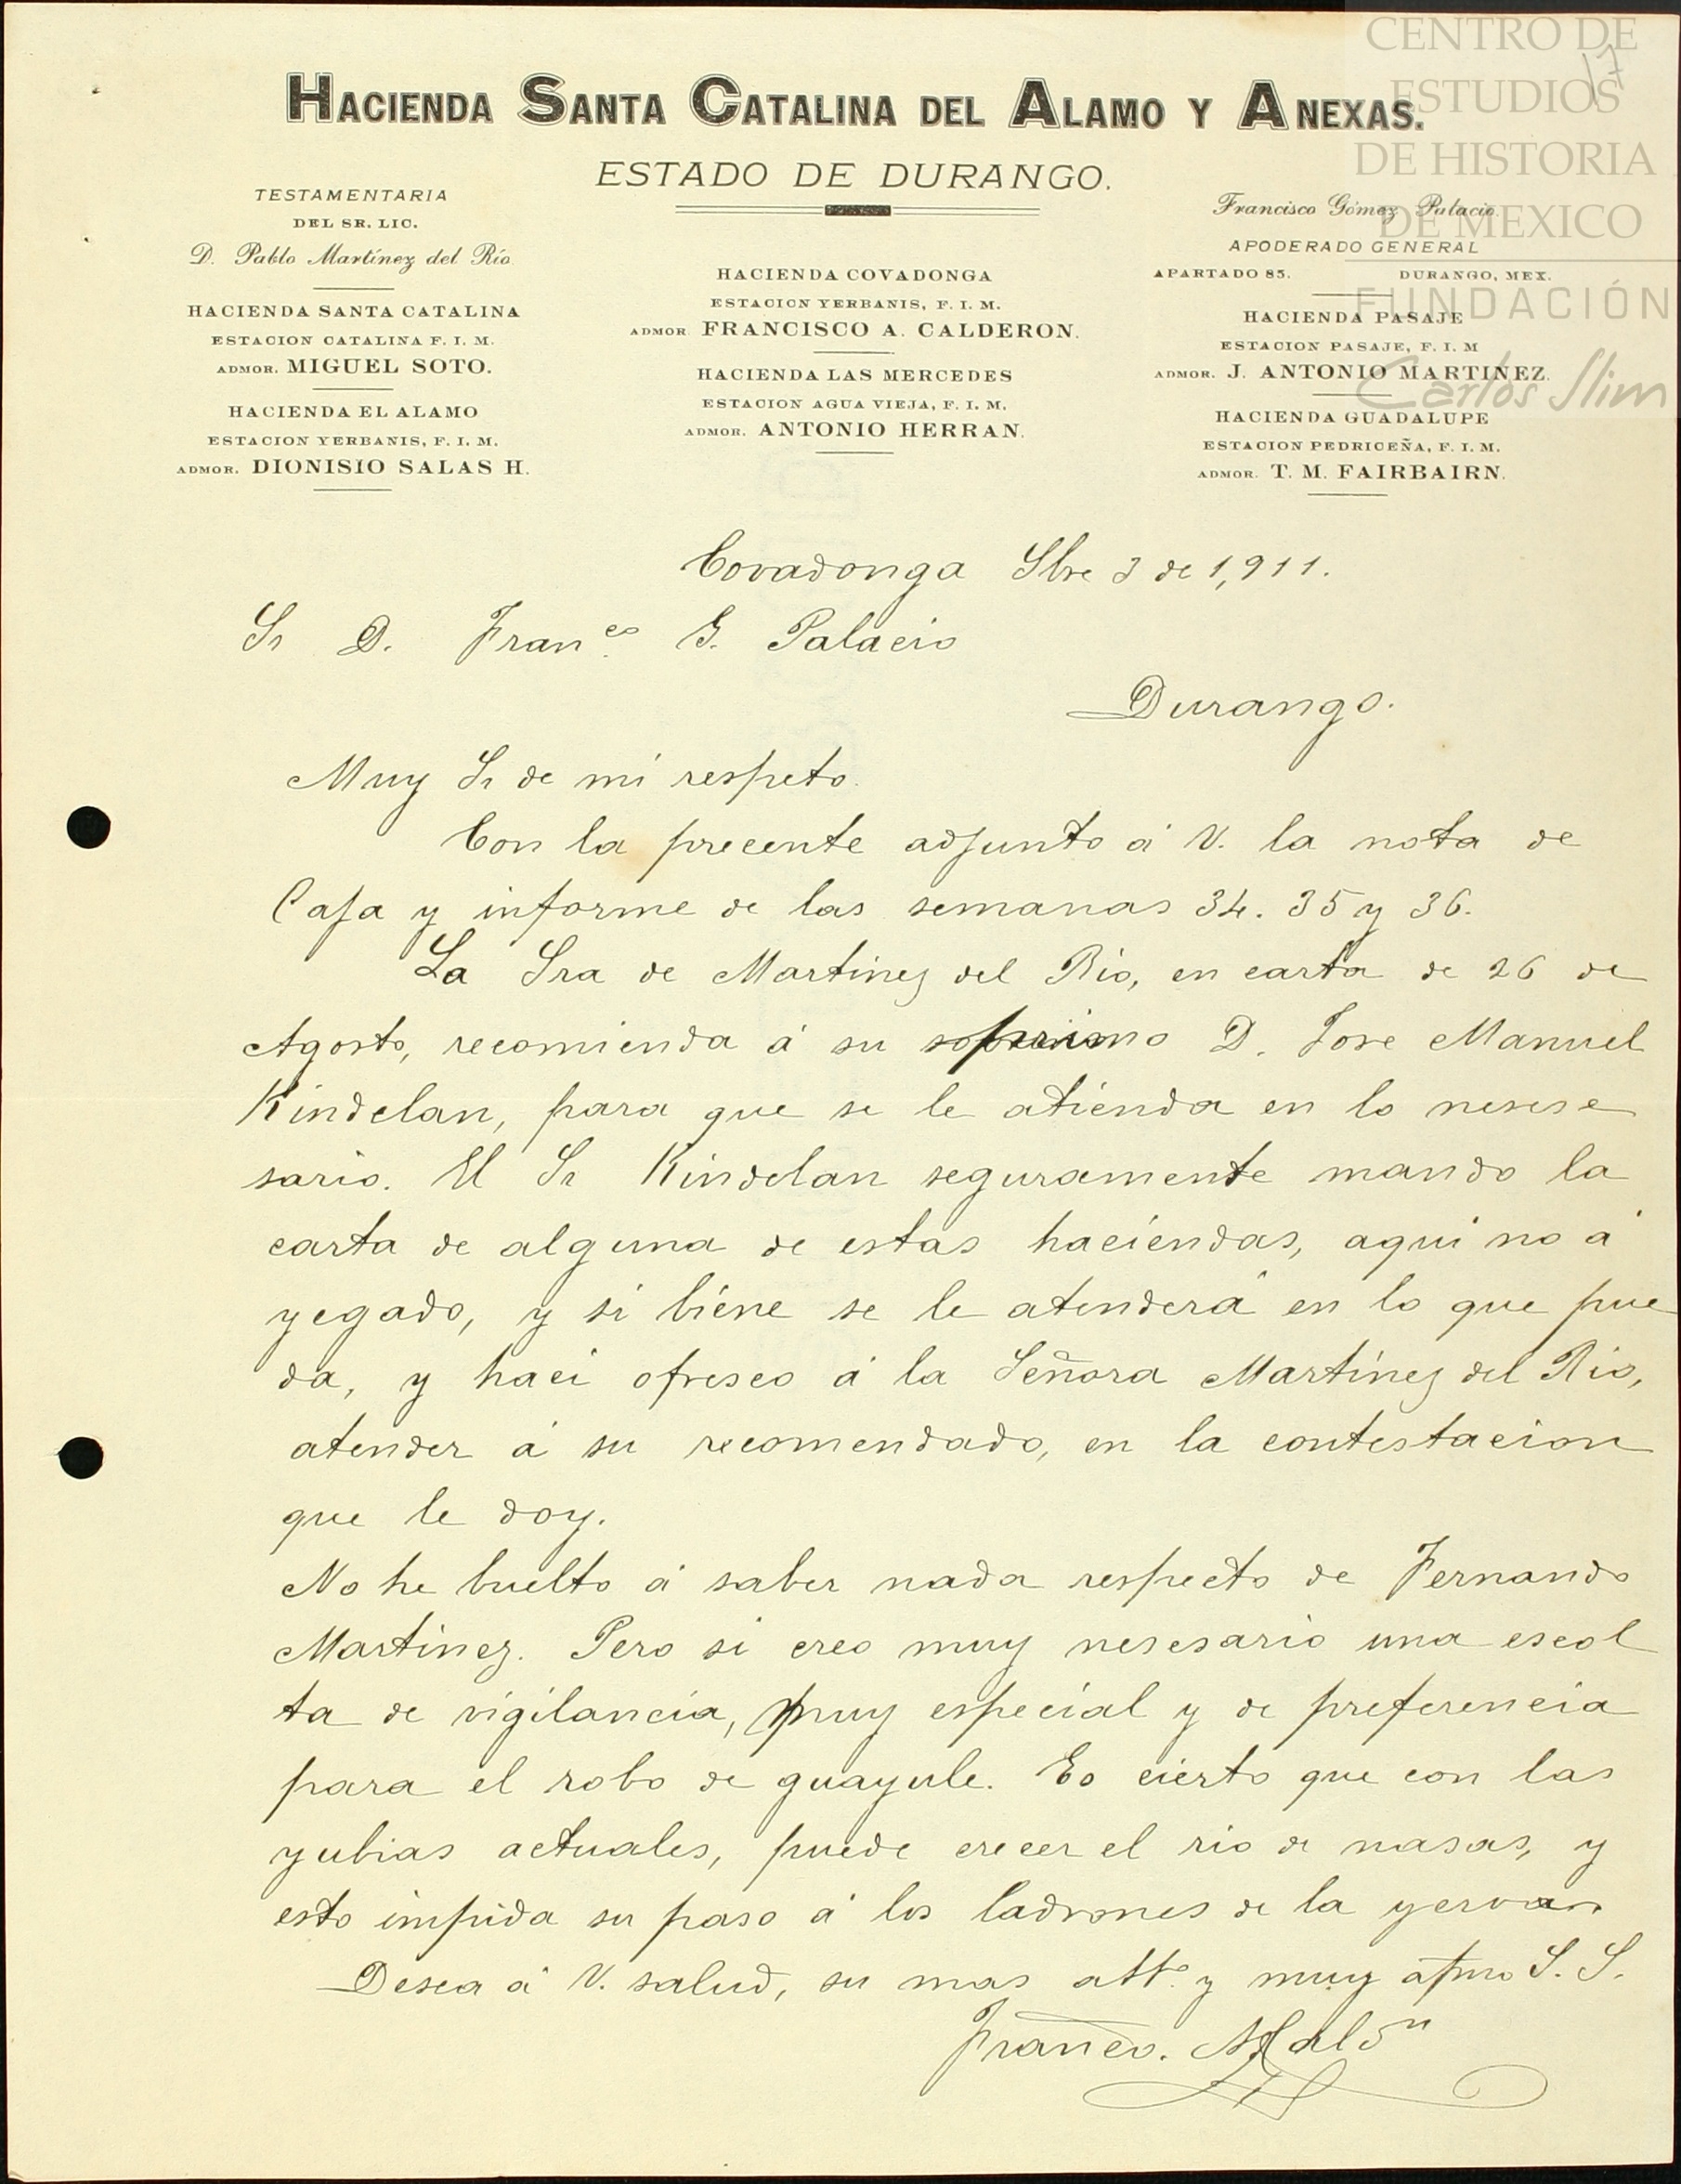 CENTRO DE
ESTUDIOS
DE HISTORIA
DE MEXICO
FUNDACIÓN
Carlos Slim
17
HACIENDA SANTA CATALINA DEL ALAMO Y ANEXAS.
ESTADO DE DURANGO.
TESTAMENTARIA
DEL SR. LIC.
D. Pablo Martínez del Río.
HACIENDA SANTA CATALINA
ESTACION CATALINA F. I. M.
ADMOR. MIGUEL SOTO.
HACIENDA EL ALAMO
ESTACION YERBANIS, F. I. M.
ADMOR. DIONISIO SALAS H.
HACIENDA COVADONGA
ESTACION YERBANIS, F. I. M.
ADMOR. FRANCISCO A. CALDERON.
HACIENDA LAS MERCEDES
ESTACION AGUA VIEJA, F. I. M.
ADMOR. ANTONIO HERRAN.
Francisco Gómez Palacio.
APODERADO GENERAL
APARTADO 85. DURANGO, MEX.
HACIENDA PASAJE
ESTACION PASAJE, F. I. M
ADMOR. J. ANTONIO MARTINEZ.
HACIENDA GUADALUPE
ESTACION PEDRICEÑA, F. I. M.
ADMOR. T. M. FAIRBAIRN.
Covadonga Sbre 3 de 1,911.
Sr D. Franco G. Palacio
Durango.
Muy Sr de mi respeto.
Con la precente adjunto á V. la nota de
Caja y informe de las semanas 34. 35 y 36.
La Sra de Martinez del Rio, en carta de 26 de
Agosto, recomienda á su primo D. Jose Manuel
Kindelan, para que se le atienda en lo nesese
sario. El Sr Kindelan seguramente mando la
carta de alguna de estas haciendas, aqui no á
yegado, y si biene se le atenderá en lo que pue
da, y haci ofresco á la Señora Martinez del Rio,
atender á su recomendado, en la contestacion
que le doy.
No he buelto á saber nada respecto de Fernando
Martinez. Pero si creo muy nesesario una escol
ta de vigilancia, muy especial y de preferencia
para el robo de guayule. Es cierto que con las
yubias actuales, puede crecer el rio de nasas, y
esto impida su paso á los ladrones de la yerva
Desea á V. salud, su mas atto. y muy afmo S. S.
Franco. A. Calón